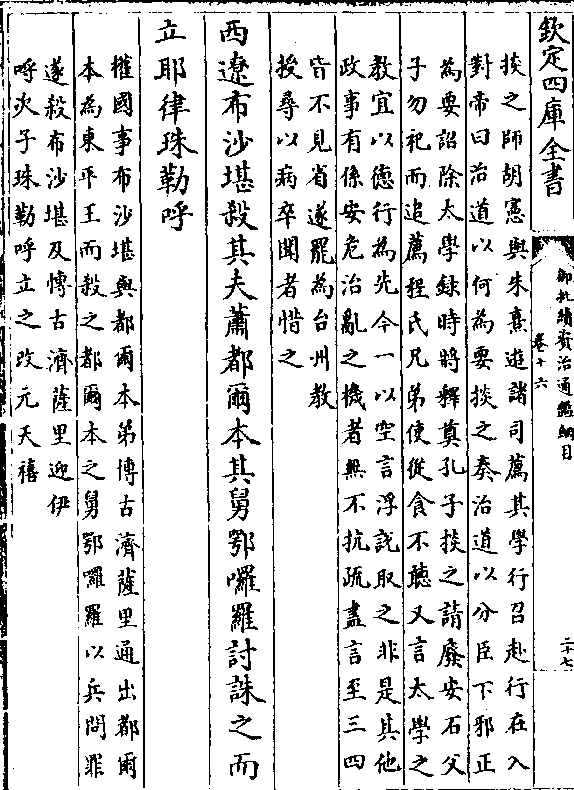 欽定四庫全書
御批續資治通鑑綱目
卷十六
二十七
掞之師胡憲與朱熹遊諸司薦其學行召赴行在入
對帝曰治道以何為要掞之奏治道以分臣下邪正
為要詔除太學録時將釋奠孔子掞之請廢安石父
子勿祀而追薦程氏兄弟使從食不聽又言太學之
教宜以德行為先今一以空言浮說取之非是其他
政事有係安危治亂之機者無不抗疏盡言至三四
皆不見省遂罷為台州教
授尋以病卒聞者惜之
西遼布沙堪殺其夫蕭都爾本其舅鄂囉羅討誅之而
立耶律珠勒呼
權國事布沙堪與都爾本弟博古濟薩里通出都爾
本為東平王而殺之都爾本之舅鄂囉羅以兵問罪
遂殺布沙堪及博古濟薩里迎伊
呼次子珠勒呼立之改元天禧